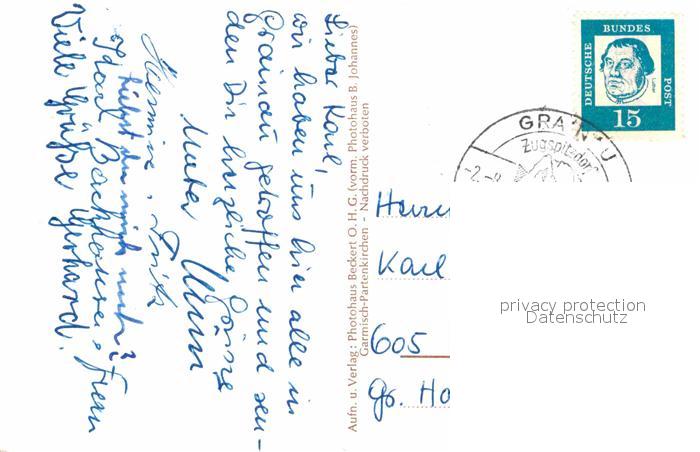 Lieber Karl!
wir haben uns hier alle in
Grainau getroffen und sen-
den Dir herzliche Grüsse
Unn
Hermine, Fritz
Karl Backhaus, Frau
Viele Grüße Gerhard.
Aufn. u. Verlag: Photohaus Beckert O. H. G. (vorm. Photohaus B. Johannes)
Garmisch-Partenkirchen - Nachdruck verboten
DEUTSCHE BUNDES POST
Luther
15
GRAINAU
Zugspitzdorf
Herrn
Karl
605
Gr. Ho
privacy protection
Datenschutz